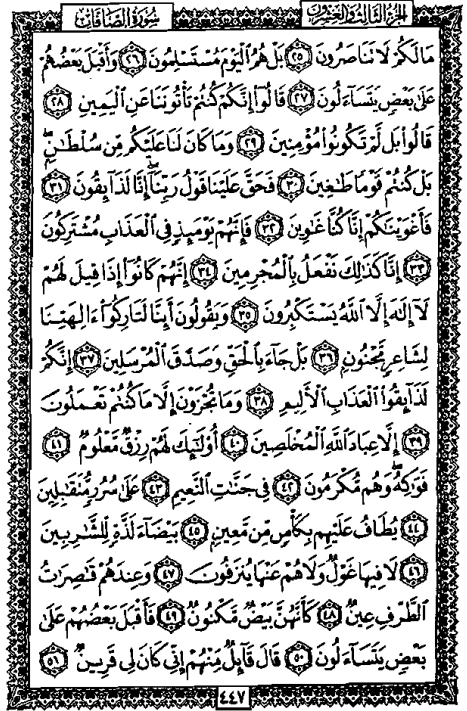 الجزء الثالث والعشرون
سورة الصافات
مَا لَكُمْ لَا تَنَاصَرُونَ ﴿٢٥﴾ بَلْ هُمُ الْيَوْمَ مُسْتَسْلِمُونَ ﴿٢٦﴾ وَأَقْبَلَ بَعْضُهُمْ
عَلَىٰ بَعْضٍ يَتَسَاءَلُونَ ﴿٢٧﴾ قَالُوا إِنَّكُمْ كُنْتُمْ تَأْتُونَنَا عَنِ الْيَمِينِ ﴿٢٨﴾
قَالُوا بَلْ لَمْ تَكُونُوا مُؤْمِنِينَ ﴿٢٩﴾ وَمَا كَانَ لَنَا عَلَيْكُمْ مِنْ سُلْطَانٍ ۖ
بَلْ كُنْتُمْ قَوْمًا طَاغِينَ ﴿٣٠﴾ فَحَقَّ عَلَيْنَا قَوْلُ رَبِّنَا ۖ إِنَّا لَذَائِقُونَ ﴿٣١﴾
فَأَغْوَيْنَاكُمْ إِنَّا كُنَّا غَاوِينَ ﴿٣٢﴾ فَإِنَّهُمْ يَوْمَئِذٍ فِي الْعَذَابِ مُشْتَرِكُونَ
﴿٣٣﴾ إِنَّا كَذَٰلِكَ نَفْعَلُ بِالْمُجْرِمِينَ ﴿٣٤﴾ إِنَّهُمْ كَانُوا إِذَا قِيلَ لَهُمْ
لَا إِلَٰهَ إِلَّا اللَّهُ يَسْتَكْبِرُونَ ﴿٣٥﴾ وَيَقُولُونَ أَئِنَّا لَتَارِكُو آلِهَتِنَا
لِشَاعِرٍ مَجْنُونٍ ﴿٣٦﴾ بَلْ جَاءَ بِالْحَقِّ وَصَدَّقَ الْمُرْسَلِينَ ﴿٣٧﴾ إِنَّكُمْ
لَذَائِقُو الْعَذَابِ الْأَلِيمِ ﴿٣٨﴾ وَمَا تُجْزَوْنَ إِلَّا مَا كُنْتُمْ تَعْمَلُونَ
﴿٣٩﴾ إِلَّا عِبَادَ اللَّهِ الْمُخْلَصِينَ ﴿٤٠﴾ أُولَٰئِكَ لَهُمْ رِزْقٌ مَعْلُومٌ ﴿٤١﴾
فَوَاكِهُ ۖ وَهُمْ مُكْرَمُونَ ﴿٤٢﴾ فِي جَنَّاتِ النَّعِيمِ ﴿٤٣﴾ عَلَىٰ سُرُرٍ مُتَقَابِلِينَ
﴿٤٤﴾ يُطَافُ عَلَيْهِمْ بِكَأْسٍ مِنْ مَعِينٍ ﴿٤٥﴾ بَيْضَاءَ لَذَّةٍ لِلشَّارِبِينَ
﴿٤٦﴾ لَا فِيهَا غَوْلٌ وَلَا هُمْ عَنْهَا يُنْزَفُونَ ﴿٤٧﴾ وَعِنْدَهُمْ قَاصِرَاتُ
الطَّرْفِ عِينٌ ﴿٤٨﴾ كَأَنَّهُنَّ بَيْضٌ مَكْنُونٌ ﴿٤٩﴾ فَأَقْبَلَ بَعْضُهُمْ عَلَىٰ
بَعْضٍ يَتَسَاءَلُونَ ﴿٥٠﴾ قَالَ قَائِلٌ مِنْهُمْ إِنِّي كَانَ لِي قَرِينٌ ﴿٥١﴾
٤٤٧